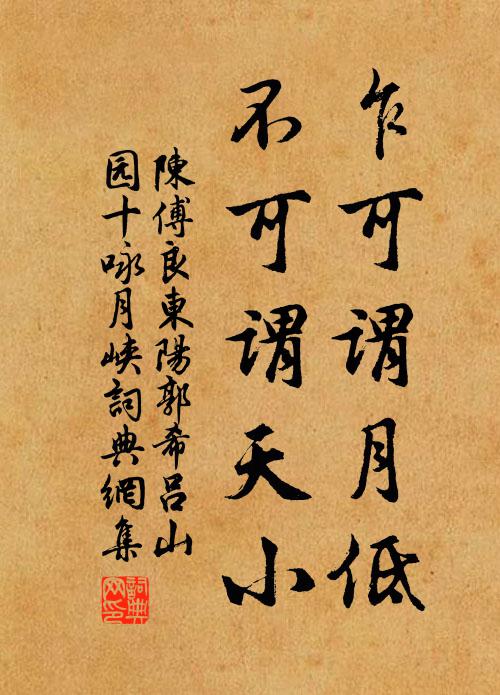 乍可谓月低
不可谓天小
陳傅良東陽郭希吕山
园十咏月峡詞典網集
詞典网印